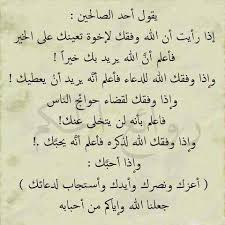 يقول أحد الصالحين :
إذا رأيت أن الله وفقك لإخوة تعينك على الخير
فأعلم أنَّ الله يريد بك خيراً !
وإذا وفقك الله للدعاء فأعلم أنَّه يريد أنْ يعطيك !
وإذا وفقك لقضاء حوائج الناس
فاعلم بأنه لن يتخلى عنك!
وإذا وفقك الله لذكره فأعلم أنَّه يحبّك .!
وإذا أحبّك :
( أعزك ونصرك وأيدك وأستجاب لدعائك )
جعلنا الله وإياكم من أحبابه